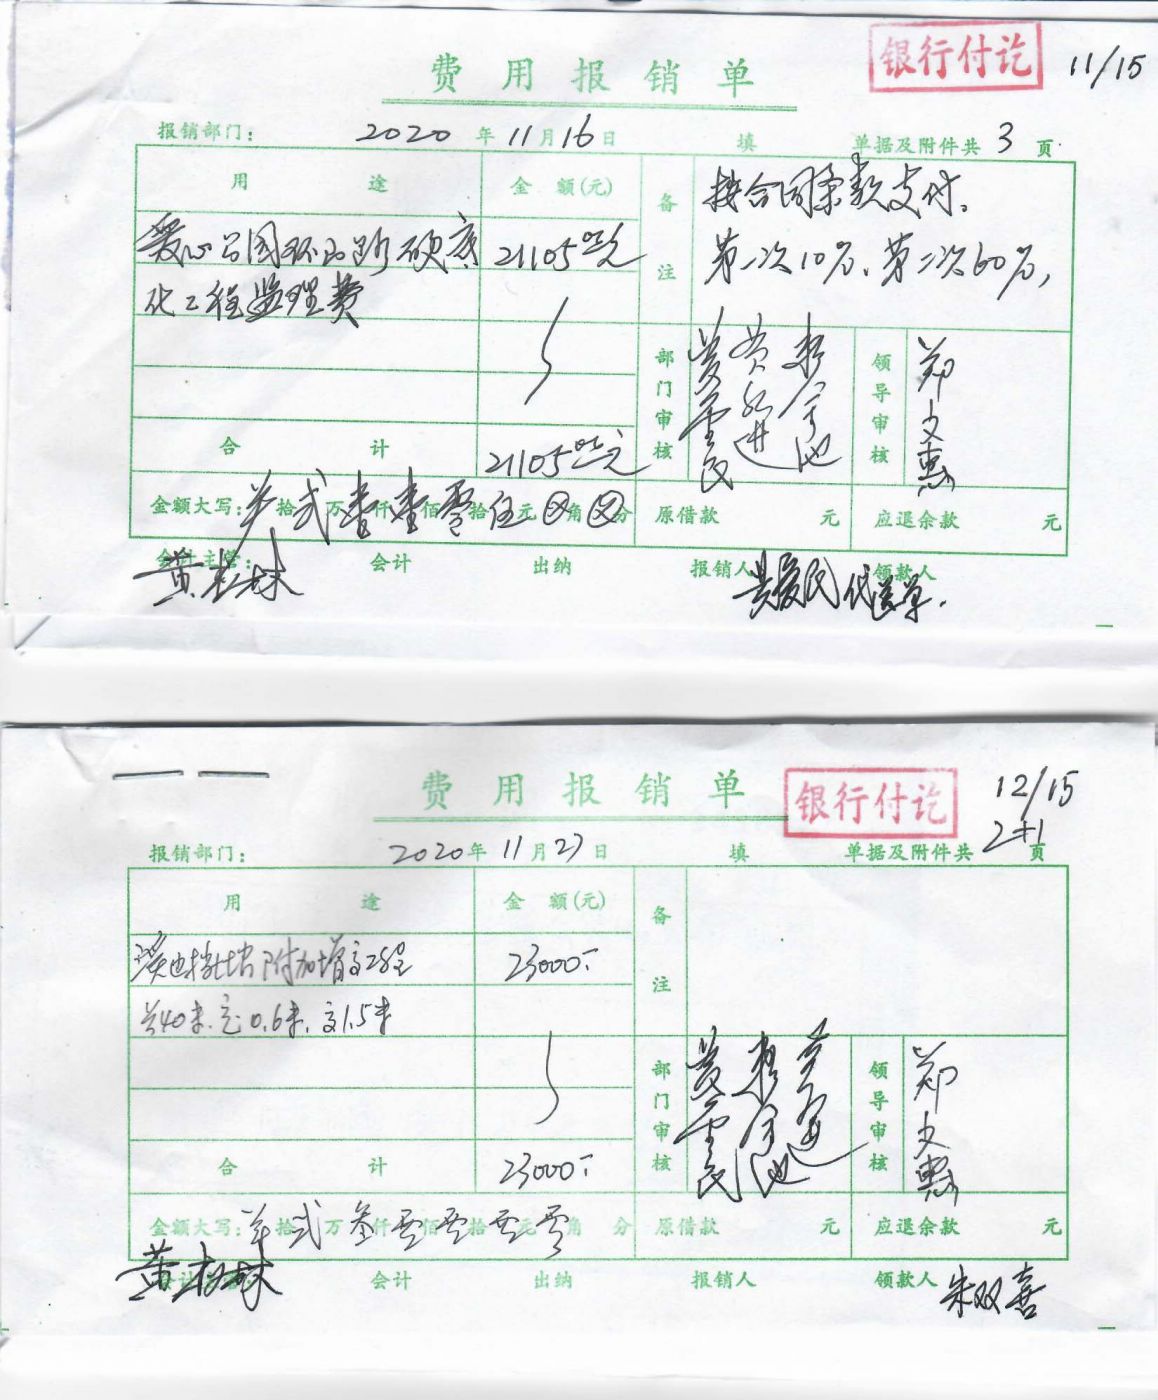 费用报销单
银行付讫
11/15
报销部门： 2020年11月16日 填 单据及附件共3页
用途 金额(元) 备注
按合同条款支付、
第一次10%、第二次60%,
爱心公园环山路硬底 21105元
化工程监理费
部门审核 领导审核 郑文惠
合计 21105元
金额大写： 拾贰万壹仟壹佰零拾伍元⊗角⊗分 原借款 元 应退余款 元
会计主管： 会计 出纳 报销人 领款人
费用报销单
银行付讫
12/15
2+1
报销部门： 2020年11月27日 填 单据及附件共 页
用途 金额(元) 备注
挡土墙附加增高 23000
共40米.宽0.6米.高1.5米
部门审核 领导审核 郑文惠
合计 23000
金额大写： 拾贰万叁仟零佰零拾零元零角 分 原借款 元 应退余款 元
会计 出纳 报销人 领款人 朱双喜